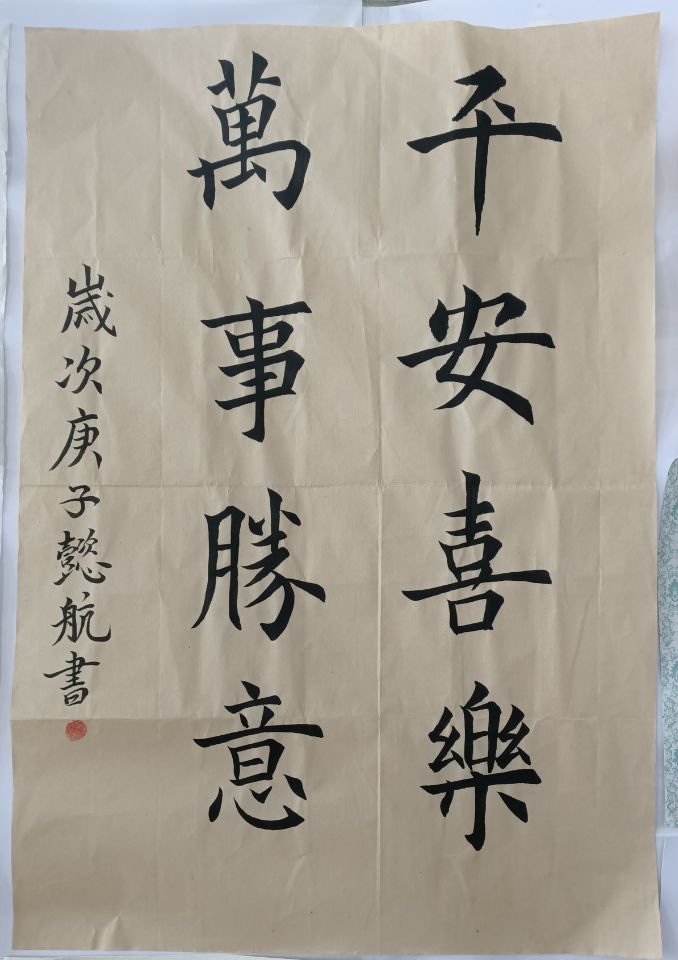 平安喜樂
萬事勝意
歳次庚子懿航書